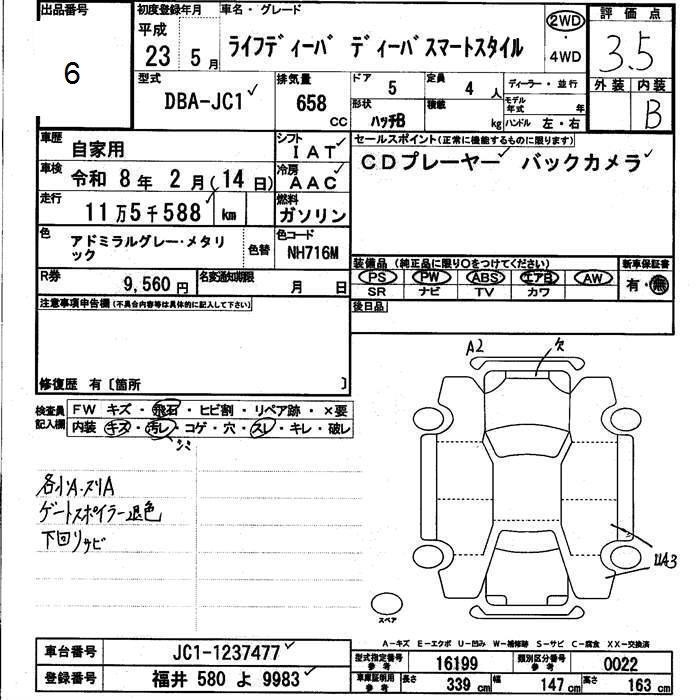 出品番号 初度登録年月 車名・グレード 評価点
6 平成 23 5月 ライフディーバ ディーバスマートスタイル 2WD・4WD 3.5
型式 排気量 ドア 5 定員 4人 ディーラー・並行 外装 内装
DBA-JC1 658 CC 形状 ハッチB 積載 kg モデル年式 年 ハンドル 左・右 B
車歴 自家用 シフト IAT セールスポイント(正常に機能するものに限ります)
車検 令和 8年 2月(14日) 冷房 AAC CDプレーヤー バックカメラ
走行 11万5千588 km 燃料 ガソリン
色 アドミラルグレー・メタリック 色替 色コード NH716M
装備品(純正品に限り○をつけてください) 新車保証書
PS PW ABS エアB AW 有・無
SR ナビ TV カワ
R券 9,560円 名変通知期限 月 日
後日品
注意事項申告欄(不具合内容等は具体的に記入して下さい)
修復歴 有〔箇所 〕
検査員記入欄 FW キズ・飛石・ヒビ割・リペア跡・×要
内装 キズ・汚レ・コゲ・穴・スレ・キレ・破レ
シミ
A2 欠
各小A・スリA
ゲートスポイラー退色
下回りサビ
UA3
スペア
A-キズ E-エクボ U-凹み W-補修跡 S-サビ C-腐食 XX-交換済
車台番号 JC1-1237477 型式指定番号 参考 16199 類別区分番号 参考 0022
登録番号 福井 580 よ 9983 車庫証明用 参考 長さ 339 cm 幅 147 cm 高さ 163 cm